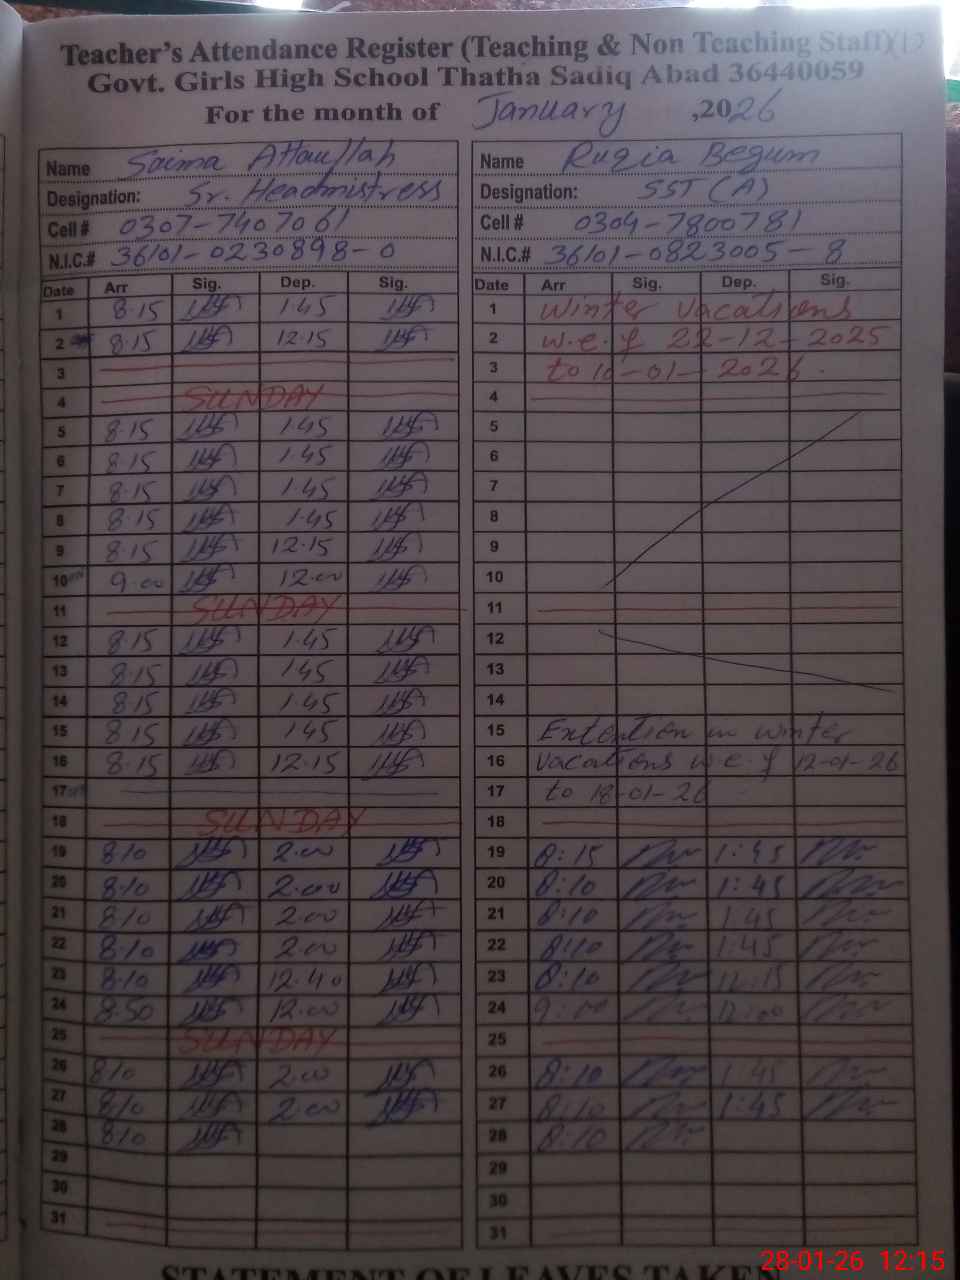 Teacher's Attendance Register (Teaching & Non Teaching Staff)
Govt. Girls High School Thatha Sadiq Abad 36440059
For the month of January ,2026
Name Saima Attaullah
Designation: Sr. Headmistress
Cell # 0307-7407061
N.I.C.# 36101-0230898-0
Date Arr Sig. Dep. Sig.
1 8.15 1.45
2 8.15 12.15
3
4 SUNDAY
5 8.15 1.45
6 8.15 1.45
7 8.15 1.45
8 8.15 1.45
9 8.15 12.15
10 9.00 12.00
11 SUNDAY
12 8.15 1.45
13 8.15 1.45
14 8.15 1.45
15 8.15 1.45
16 8.15 12.15
17
18 SUNDAY
19 8.10 2.00
20 8.10 2.00
21 8.10 2.00
22 8.10 2.00
23 8.10 12.40
24 8.50 12.00
25 SUNDAY
26 8.10 2.00
27 8.10 2.00
28 8.10
29
30
31
Name Ruqia Begum
Designation: SST (A)
Cell # 0304-7800781
N.I.C.# 36101-0823005-8
Date Arr Sig. Dep. Sig.
1 Winter vacations
2 w.e.f 22-12-2025
3 to 10-01-2026.
4
5
6
7
8
9
10
11
12
13
14
15 Extention in winter
16 vacations w.e.f 12-01-26
17 to 18-01-26
18
19 8:15 1:45
20 8:10 1:45
21 8:10 1:45
22 8:10 1:45
23 8:10 12:15
24 9:00 12:00
25
26 8:10 1:45
27 8:10 1:45
28 8:10
29
30
31
STATEMENT OF LEAVES TAKEN
28-01-26 12:15